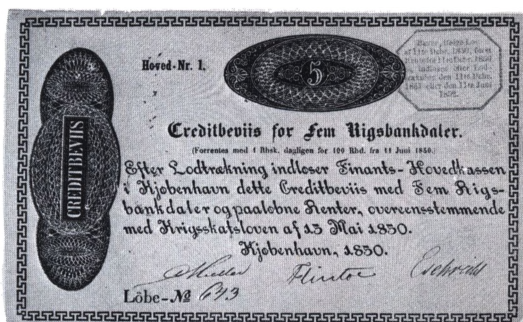 Hoved-Nr. 1.
5
CREDITBEVIIS
Creditbeviis for Fem Rigsbankdaler.
(Forrentes med 1 Rbsk. dagligen for 100 Rbd. fra 11 Juni 1850.)
Efter Lodtrækning indløser Finants-Hovedkassen
i Kjøbenhavn dette Creditbeviis med Fem Rigs-
bankdaler og paaløbne Renter, overeensstemmende
med Krigsskatsloven af 13 Mai 1850.
Kjøbenhavn, 1850.
Löbe-№ 693